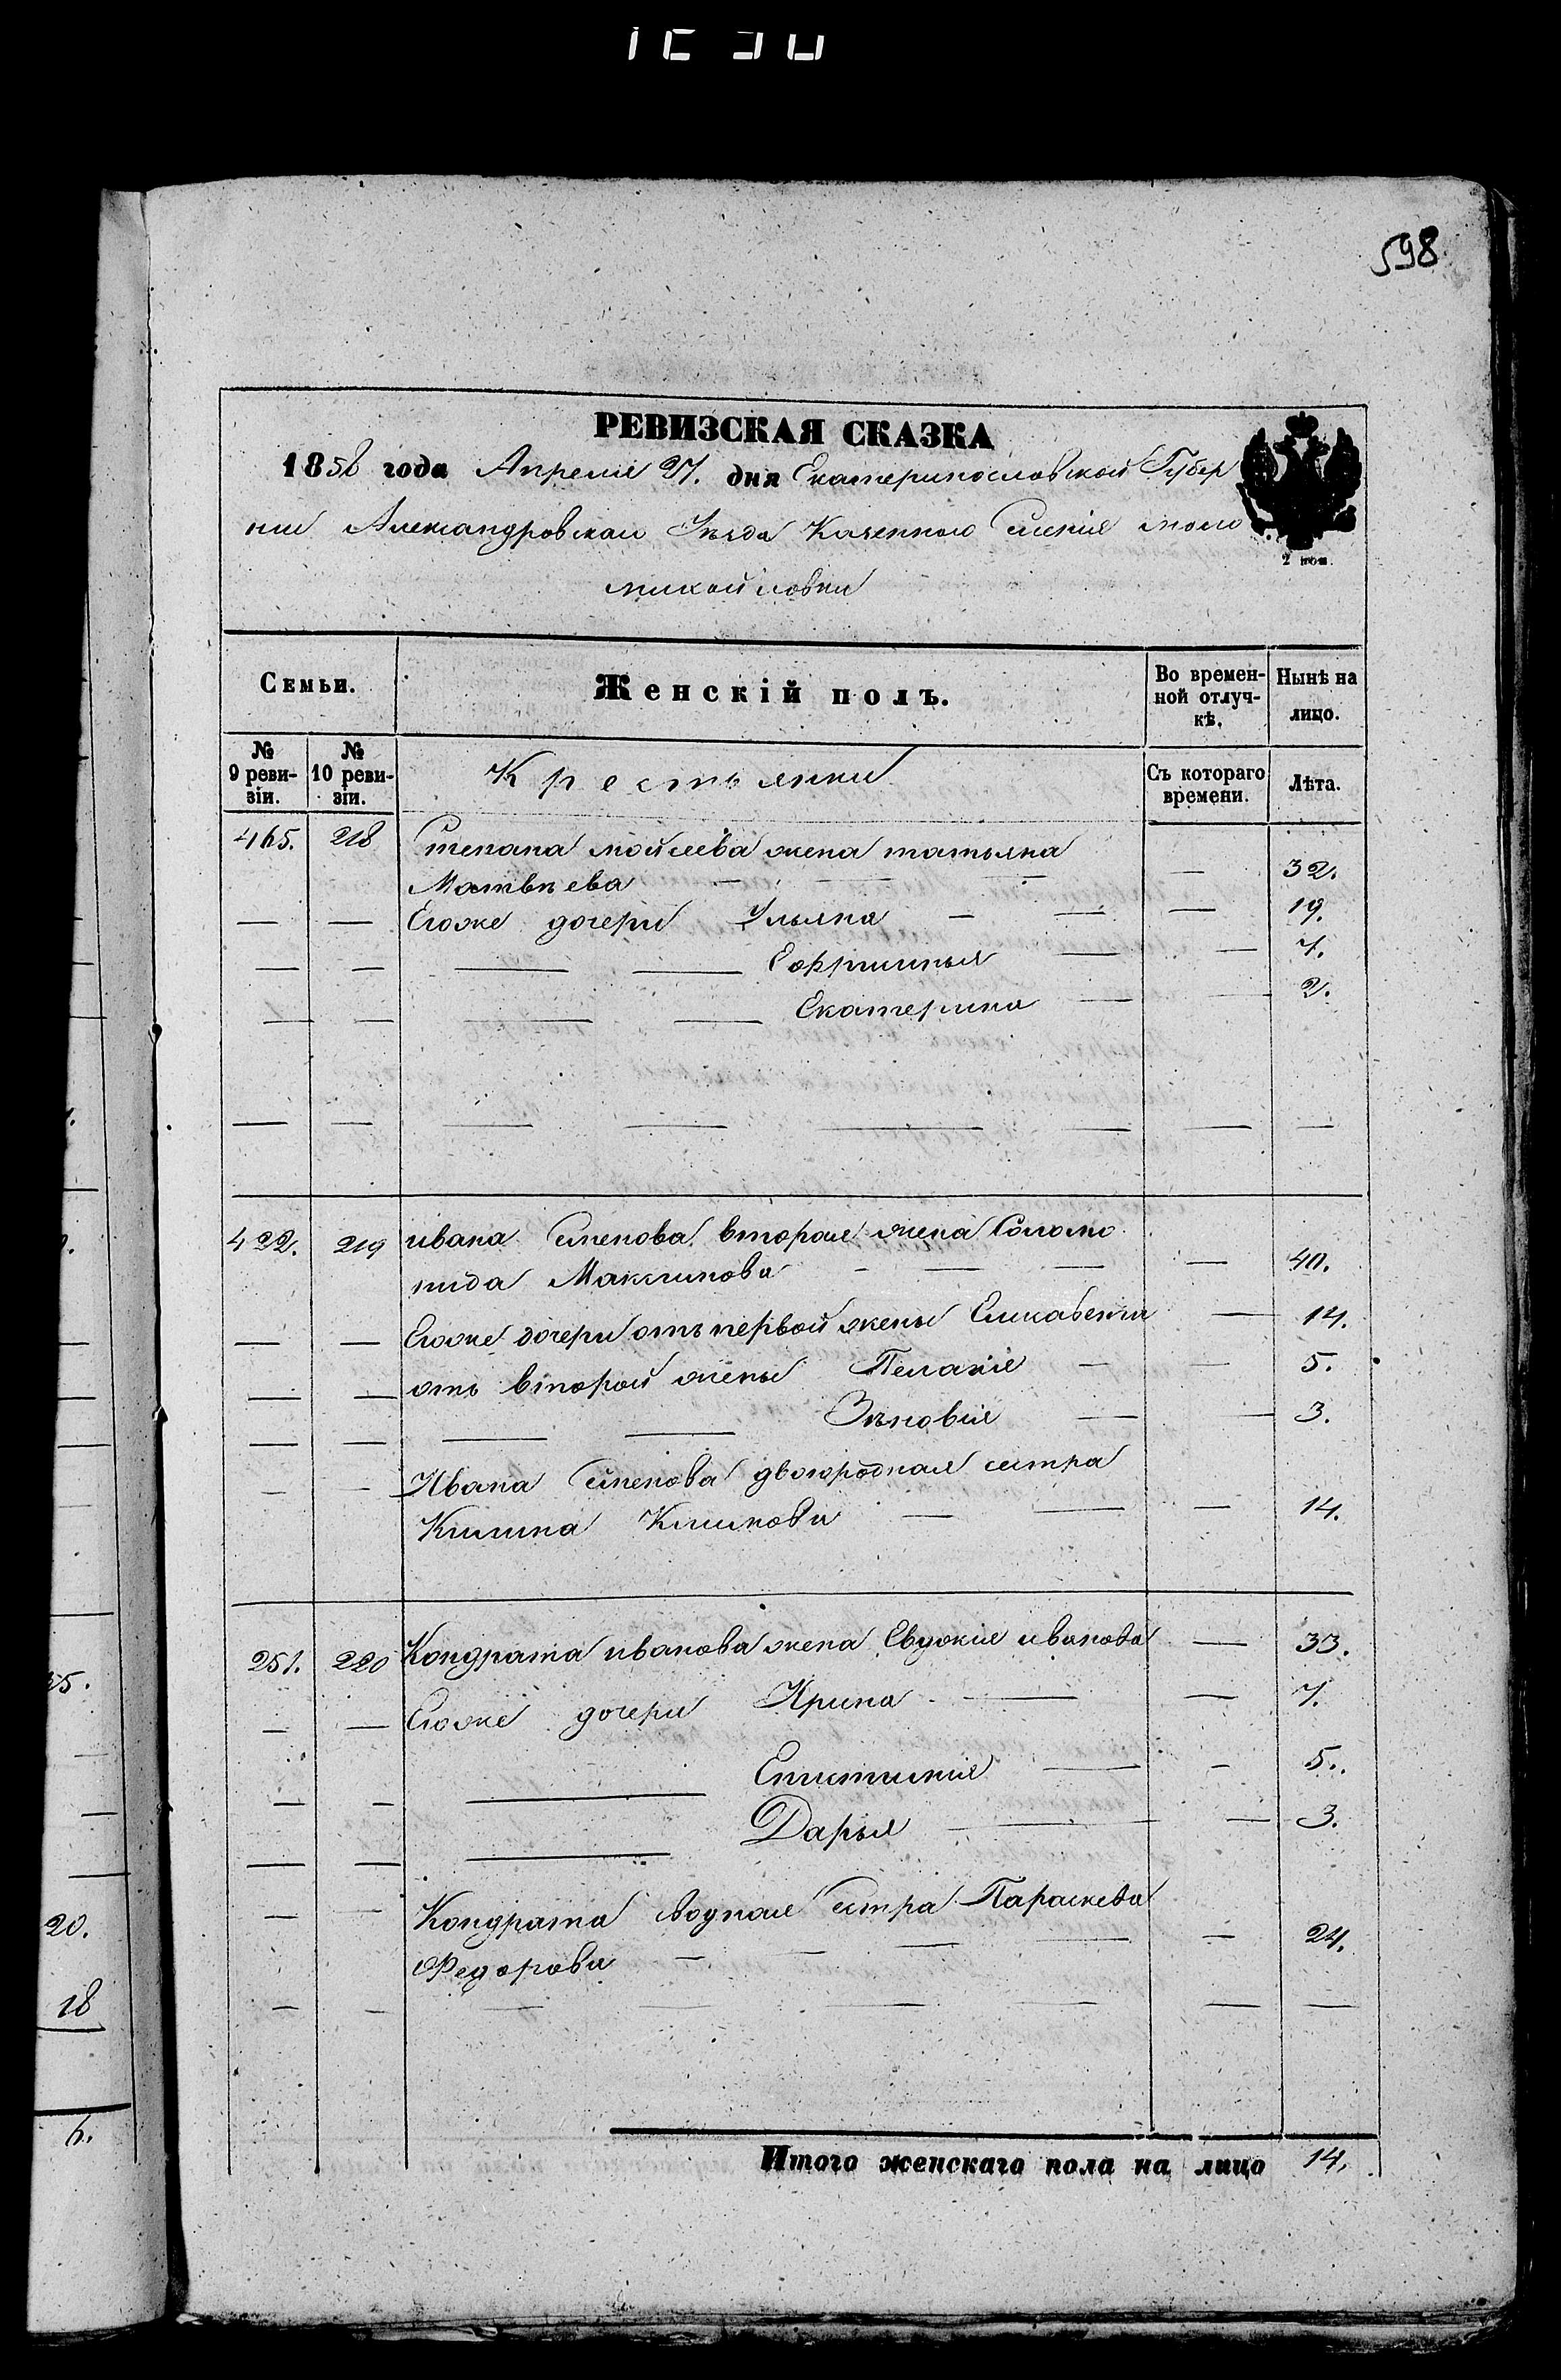 598
РЕВИЗСКАЯ СКАЗКА
1858 года Апреля 27. дня Екатеринославской Губер
нии Александровскаго Уѣзда Казенного Селенія мало
михайловки
2 коп.
Семьи. Женскій полъ. Во времен- Нынѣ на
ной отлуч- лицо.
кѣ.
№ № Крестьянки Съ котораго Лѣта.
9 реви- 10 реви- времени.
зіи. зіи.
465. 218 Степана мойсеева жена татьяна
Матвѣева — — — — 32.
— — Егоже дочери Ульяна — — — 19.
— — — — Ефриминья — — 7.
— — — — Екатерина — — 2.
— — — — — — — —
422. 219 ивана Семенова вторая жена Соломо
нида Максимова — — — — 40.
— — Егоже дочери отъ первой жены Елисабетта — 14.
— — отъ второй жены Пелагія — — 5.
— — — — Зѣновія — — 3.
— — Ивана Семенова двоюродная сестра
Килина Климова — — — 14.
251. 220 Кондрата иванова жена Евдокія иванова — 33.
— — Егоже дочери Ирина — — 7.
— — — Епистимія — — 5.
— — — Дарья — — 3.
— — Кондрата сводная сестра Параскева
Федорова — — — — — 24.
— — — — — — — —
Итого женскаго пола на лицо 14.
20.
18